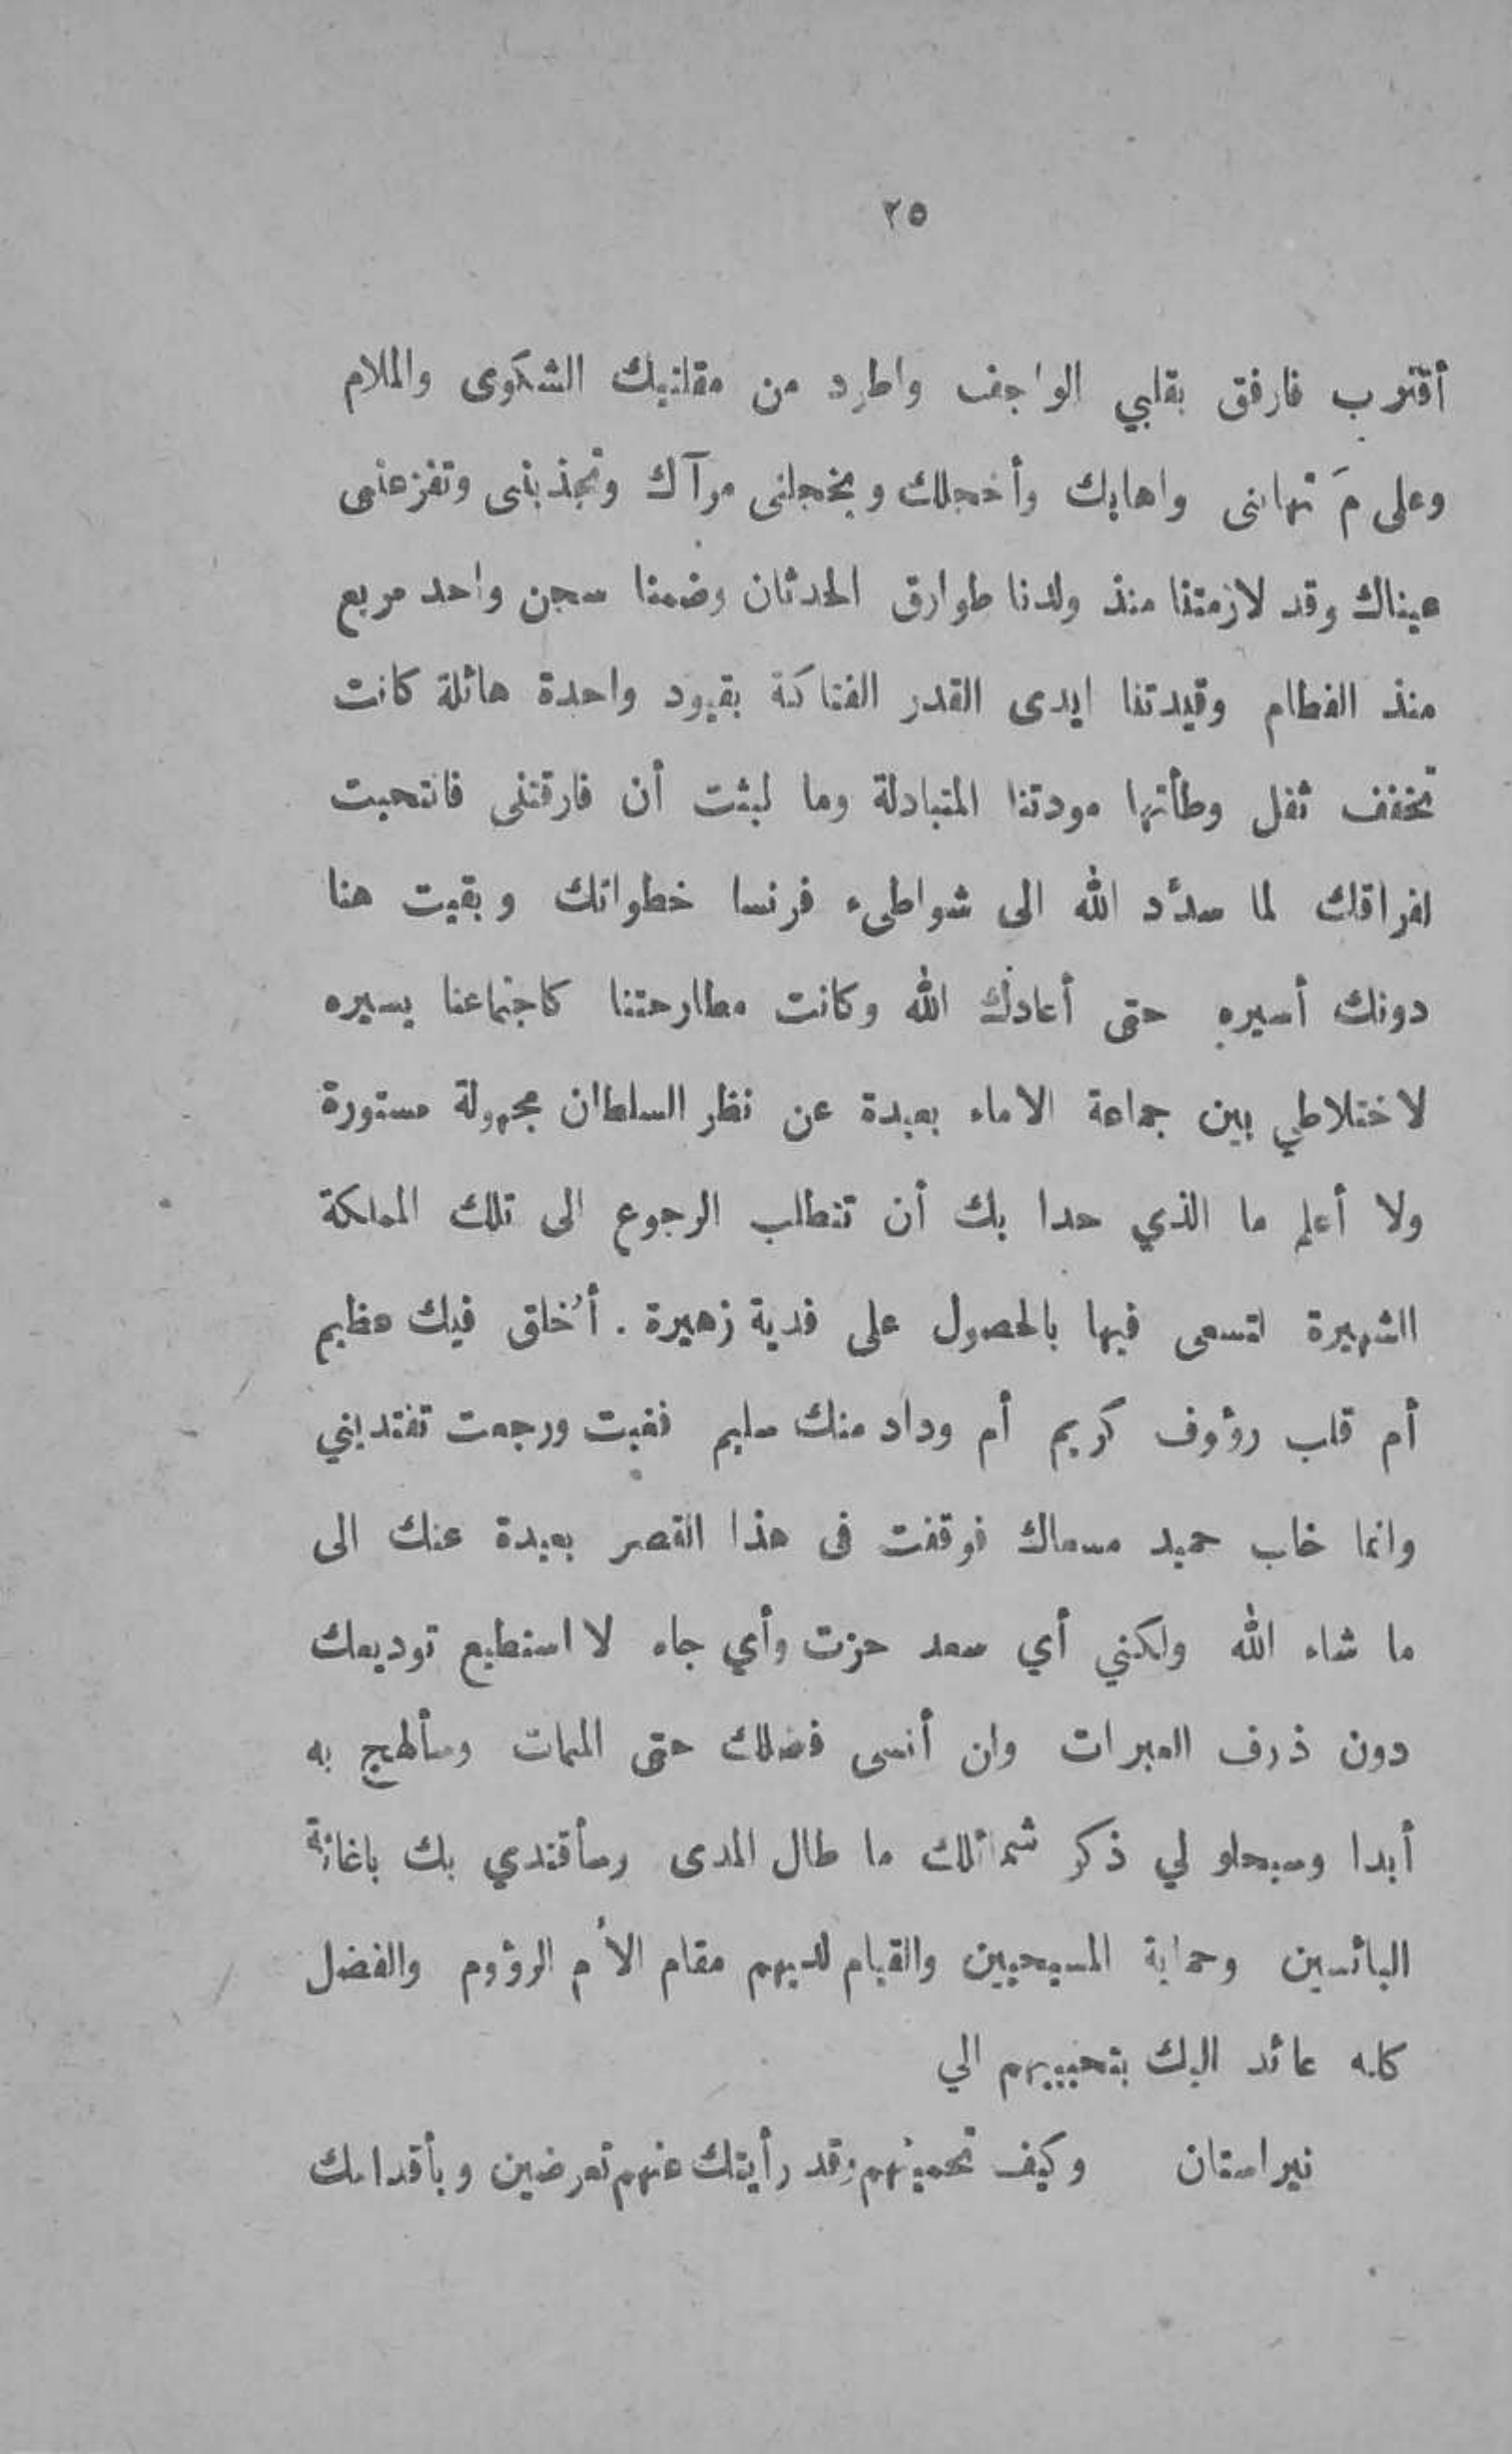 ٢٥
أقترب فارفق بقلبي الواجف واطرد من مقلتيك الشكوى والملام
وعلى مَ تهابنى واهابك وأخجلك ويخجلنى مرآك وتجذبنى وتفزعنى
عيناك وقد لازمتنا منذ ولدنا طوارق الحدثان وضمنا سجن واحد مربع
منذ الفطام وقيدتنا ايدى القدر الفتاكة بقيود واحدة هائلة كانت
تخفف ثقل وطأتها مودتنا المتبادلة وما لبثت أن فارقتنى فانتحبت
لفراقك لما سدَّد الله الى شواطىء فرنسا خطواتك وبقيت هنا
دونك أسيره حتى أعادك الله وكانت مطارحتنا كاجتماعنا يسيره
لاختلاطي بين جماعة الاماء بعيدة عن نظر السلطان مجهولة مستورة
ولا أعلم ما الذي حدا بك أن تتطلب الرجوع الى تلك المملكة
الشهيرة لتسعى فيها بالحصول على فدية زهيرة . أخُلق فيك عظيم
أم قلب رؤوف كريم أم وداد منك سليم فغبت ورجعت تفتديني
وانما خاب حميد مسعاك فوقفت فى هذا القصر بعيدة عنك الى
ما شاء الله ولكنني أي سعد حزت وأي جاه لا استطيع توديعك
دون ذرف العبرات ولن أنسى فضلك حتى الممات وسألهج به
أبدا وسيحلو لي ذكر شمائلك ما طال المدى وسأقتدي بك باغاثة
البائسين وحماية المسيحيين والقيام لديهم مقام الأم الرؤوم والفضل
كله عائد اليك بتحبيبهم الي
نيراستان وكيف تحمينهم وقد رأيتك عنهم تعرضين وبأقدامك